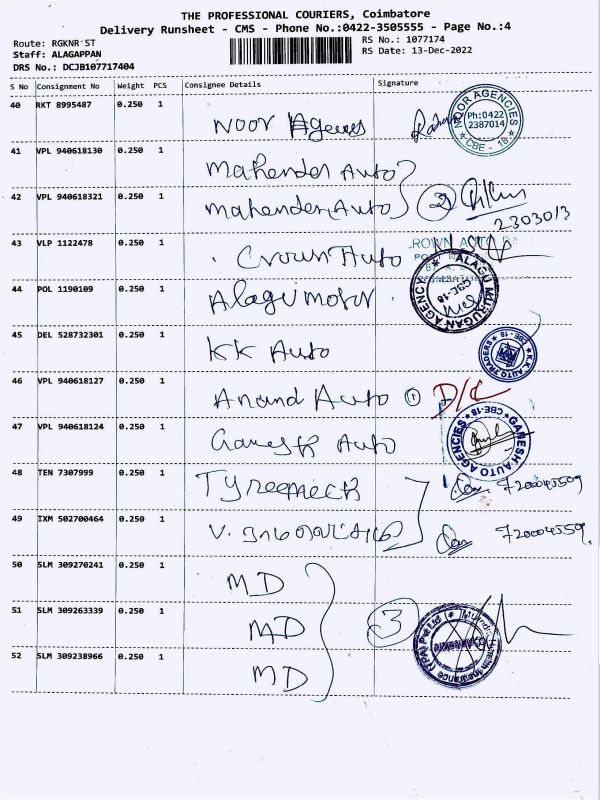 THE PROFESSIONAL COURIERS, Coimbatore
Delivery Runsheet - CMS - Phone No.:0422-3505555 - Page No.:4
Route: RGKNR ST
Staff: ALAGAPPAN
DRS No.: DCJB107717404
RS No.: 1077174
RS Date: 13-Dec-2022
S No Consignment No Weight PCS Consignee Details Signature
40 RKT 8995487 0.250 1 Noor Agencies
NOOR AGENCIES Ph:0422 2387014 CBE - 18
41 VPL 940618130 0.250 1 Mahender Auto
42 VPL 940618321 0.250 1 Mahender Auto 2
2303013
43 VLP 1122478 0.250 1 Crown Auto
44 POL 1190109 0.250 1 Alagu motor
ALAGU MURUGAN AGENCY CBE-18
45 DEL 528732301 0.250 1 KK Auto
K.K. AUTO TRADERS CBE - 18
46 VPL 940618127 0.250 1 Anand Auto 1 D/C
47 VPL 940618124 0.250 1 Ganesh Auto
GANESH AUTO AGENCIES CBE-18
48 TEN 7307999 0.250 1 Tyremeck 7200045509
49 IXM 502700464 0.250 1 V. 720004559
50 SLM 309270241 0.250 1 MD
51 SLM 309263339 0.250 1 MD 3
52 SLM 309238966 0.250 1 MD